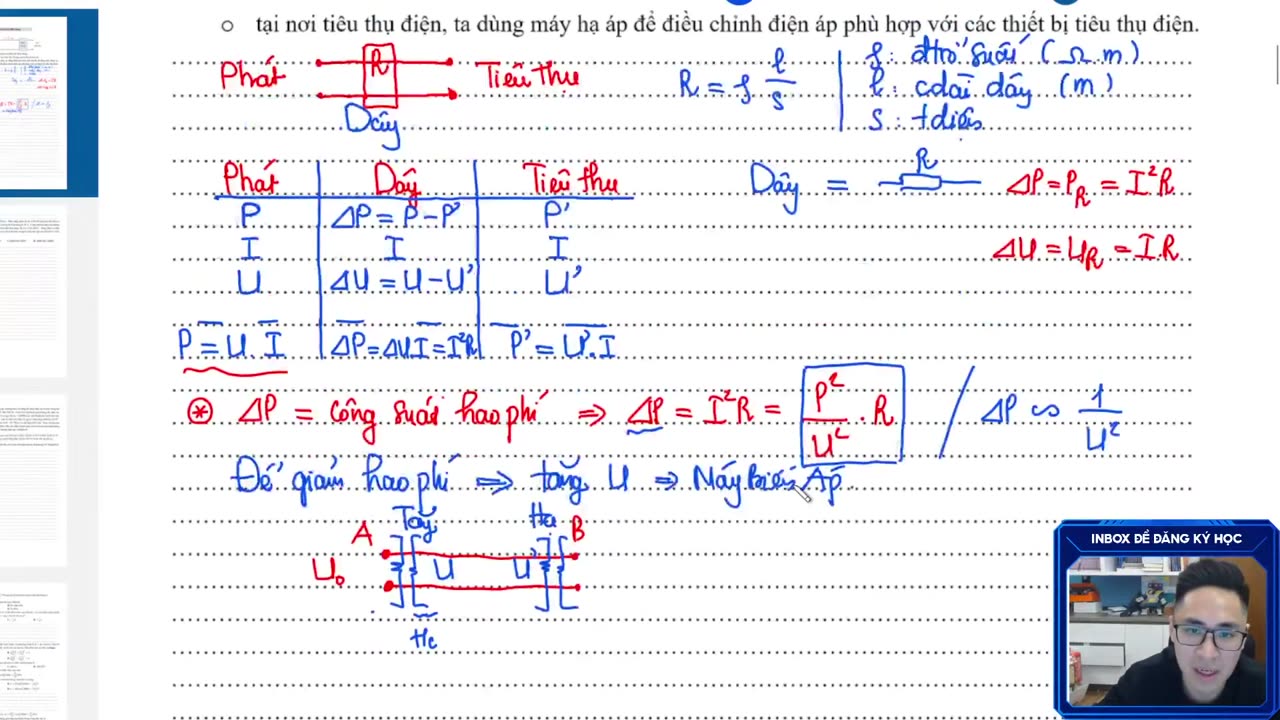 ○ tại nơi tiêu thụ điện, ta dùng máy hạ áp để điều chỉnh điện áp phù hợp với các thiết bị tiêu thụ điện.
Phát R Tiêu thụ
Dây
R = ρ l/s
ρ: đtrở suất (Ω.m)
l: cdài dây (m)
s: tdiện
Phát Dây Tiêu thụ
P ΔP = P - P' P'
I I I
U ΔU = U - U' U'
P = U.I ΔP = ΔU.I = I²R P' = U'.I
Dây = R ΔP = P_R = I²R
ΔU = U_R = I.R
⊛ ΔP = công suất hao phí ⇒ ΔP = I²R = P²/U² . R / ΔP ∽ 1/U²
Để giảm hao phí ⇒ tăng U ⇒ Máy Biến Áp
Tăng Hạ
A B
U₀ U U
Hc
INBOX ĐỂ ĐĂNG KÝ HỌC